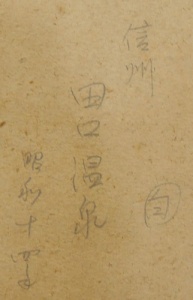 信州
田口温泉
昭和十四年
白